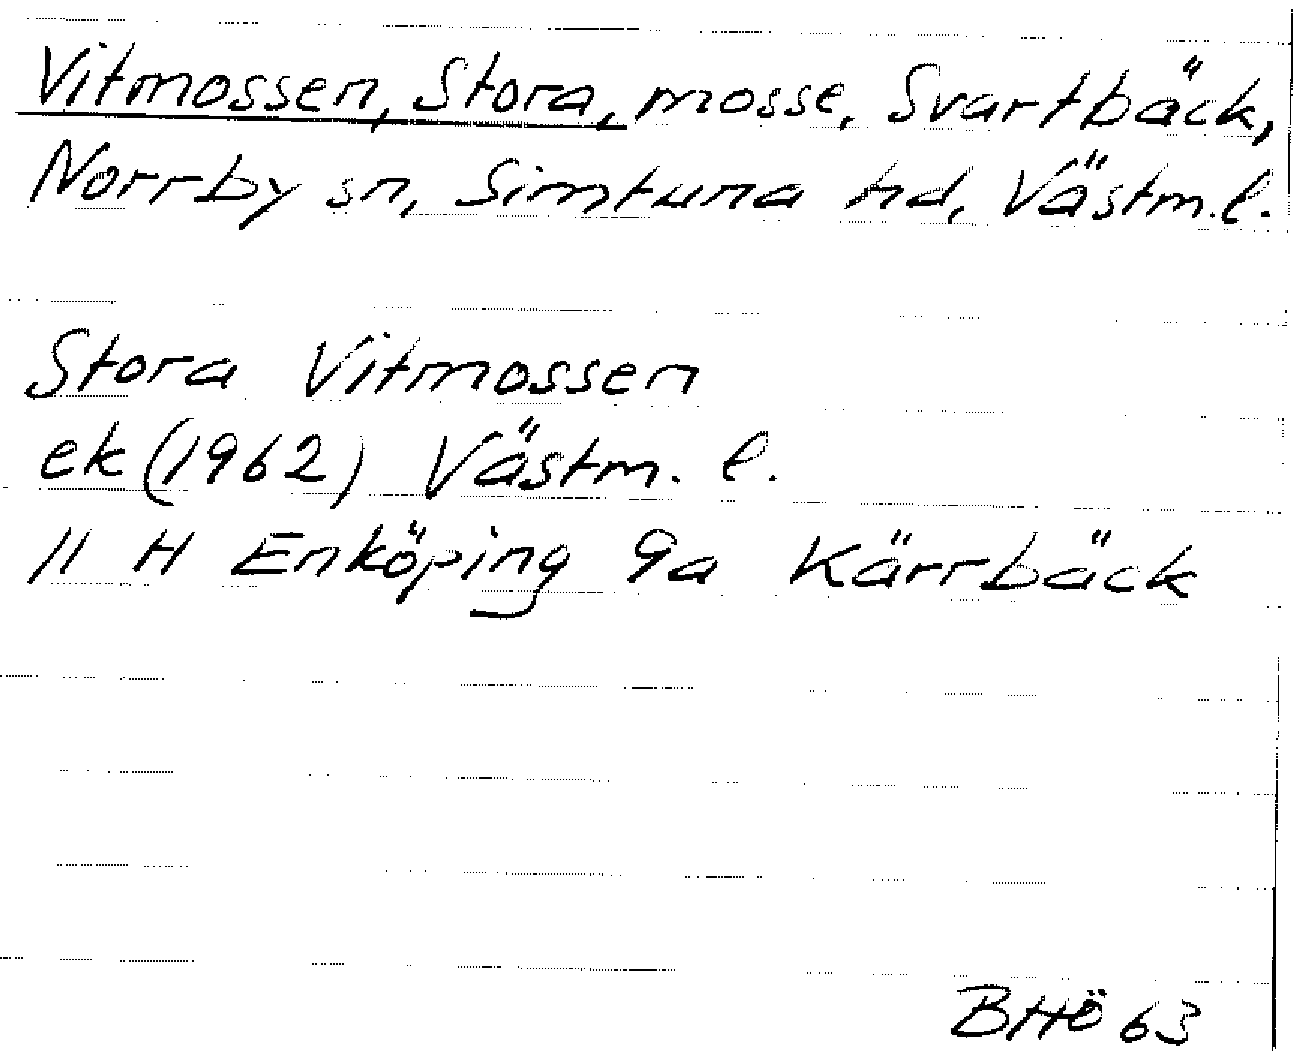 Vitmossen, Stora, mosse, Svartbäck,
Norrby sn, Simtuna hd, Västm.l.
Stora Vitmossen
ek (1962) Västm. l.
11 H Enköping 9a Kärrbäck
BHÖ 63